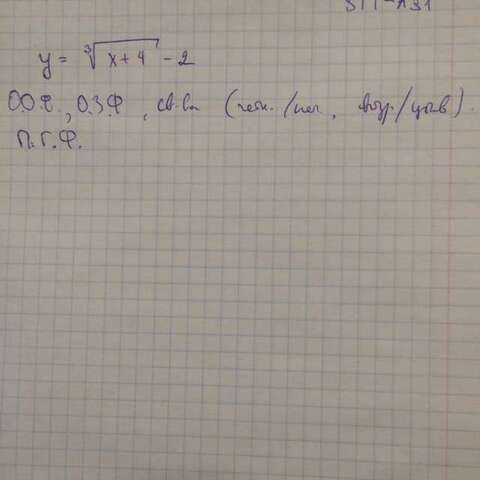 y = ∛(x+4) - 2
О.О.Ф., О.З.Ф, св-ва (четн./неч, возр/убыв).
П.Г.Ф.